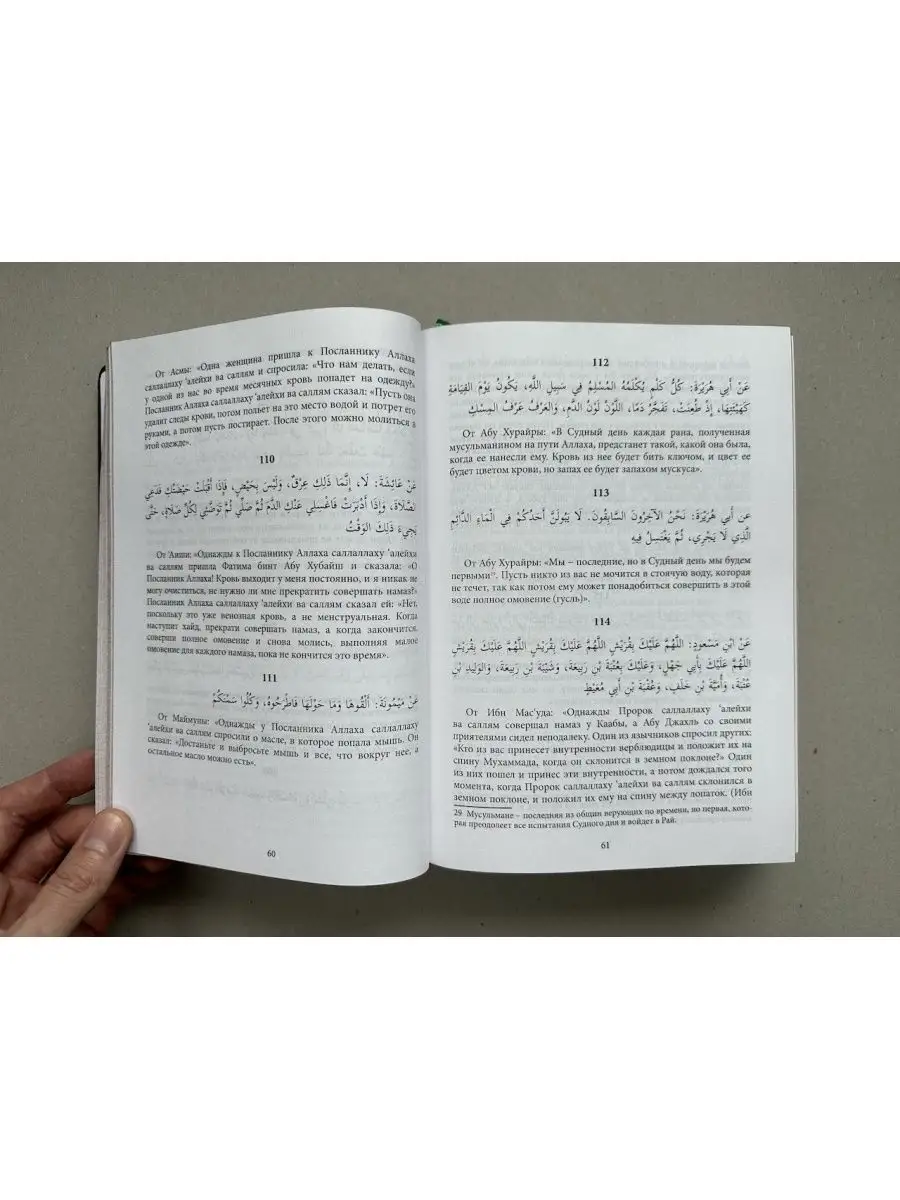 От Асмы: «Одна женщина пришла к Посланнику Аллаха
саллаллаху 'алейхи ва саллям и спросила: «Что нам делать, если
у одной из нас во время месячных кровь попадет на одежду?»
Посланник Аллаха саллаллаху 'алейхи ва саллям сказал: «Пусть она
удалит следы крови, потом польет на это место водой и потрет его
руками, а потом пусть постирает. После этого можно молиться в
этой одежде».
110
عَنْ عَائِشَةَ: لَا، إِنَّمَا ذَلِكِ عِرْقٌ، وَلَيْسَ بِحَيْضٍ، فَإِذَا أَقْبَلَتْ حَيْضَتُكِ فَدَعِي
الصَّلَاةَ، وَإِذَا أَدْبَرَتْ فَاغْسِلِي عَنْكِ الدَّمَ ثُمَّ صَلِّي ثُمَّ تَوَضَّئِي لِكُلِّ صَلَاةٍ، حَتَّى
يَجِيءَ ذَلِكَ الوَقْتُ
От 'Аиши: «Однажды к Посланнику Аллаха саллаллаху 'алейхи
ва саллям пришла Фатима бинт Абу Хубайш и сказала: «О
Посланник Аллаха! Кровь выходит у меня постоянно, и я никак не
могу очиститься, не нужно ли мне прекратить совершать намаз?»
Посланник Аллаха саллаллаху 'алейхи ва саллям сказал ей: «Нет,
поскольку это уже венозная кровь, а не менструальная. Когда
наступит хайд, прекрати совершать намаз, а когда закончится,
соверши полное омовение и снова молись, выполняя малое
омовение для каждого намаза, пока не кончится это время».
111
عَنْ مَيْمُونَةَ: أَلْقُوهَا وَمَا حَوْلَهَا فَاطْرَحُوهُ، وَكُلُوا سَمْنَكُمْ
От Маймуны: «Однажды у Посланника Аллаха саллаллаху
'алейхи ва саллям спросили о масле, в которое попала мышь. Он
сказал: «Достаньте и выбросьте мышь и все, что вокруг нее, а
остальное масло можно есть».
60
112
عَنْ أَبِي هُرَيْرَةَ: كُلُّ كَلْمٍ يُكْلَمُهُ المُسْلِمُ فِي سَبِيلِ اللَّهِ، يَكُونُ يَوْمَ القِيَامَةِ
كَهَيْئَتِهَا، إِذْ طُعِنَتْ، تَفَجَّرُ دَمًا، اللَّوْنُ لَوْنُ الدَّمِ، وَالعَرْفُ عَرْفُ المِسْكِ
От Абу Хурайры: «В Судный день каждая рана, полученная
мусульманином на пути Аллаха, предстанет такой, какой она была,
когда ее нанесли ему. Кровь из нее будет бить ключом, и цвет ее
будет цветом крови, но запах ее будет запахом мускуса».
113
عن أَبِي هُرَيْرَةَ: نَحْنُ الآخِرُونَ السَّابِقُونَ. لَا يَبُولَنَّ أَحَدُكُمْ فِي الْمَاءِ الدَّائِمِ
الَّذِي لَا يَجْرِي، ثُمَّ يَغْتَسِلُ فِيهِ
От Абу Хурайры: «Мы – последние, но в Судный день мы будем
первыми²⁹. Пусть никто из вас не мочится в стоячую воду, которая
не течет, так как потом ему может понадобиться совершить в этой
воде полное омовение (гусль)».
114
عَنْ ابْنِ مَسْعودٍ: اللَّهُمَّ عَلَيْكَ بِقُرَيْشٍ اللَّهُمَّ عَلَيْكَ بِقُرَيْشٍ اللَّهُمَّ عَلَيْكَ بِقُرَيْشٍ
اللَّهُمَّ عَلَيْكَ بِأَبِي جَهْلٍ، وَعَلَيْكَ بِعُتْبَةَ بْنِ رَبِيعَةَ، وَشَيْبَةَ بْنِ رَبِيعَةَ، وَالوَلِيدِ بْنِ
عُتْبَةَ، وَأُمَيَّةَ بْنِ خَلَفٍ، وَعُقْبَةَ بْنِ أَبِي مُعَيْطٍ
От Ибн Мас'уда: «Однажды Пророк саллаллаху 'алейхи
ва саллям совершал намаз у Каабы, а Абу Джахль со своими
приятелями сидел неподалеку. Один из язычников спросил других:
«Кто из вас принесет внутренности верблюдицы и положит их на
спину Мухаммада, когда он склонится в земном поклоне?» Один
из них пошел и принес эти внутренности, а потом дождался того
момента, когда Пророк саллаллаху 'алейхи ва саллям склонился в
земном поклоне, и положил их ему на спину между лопаток. (Ибн
29 Мусульмане – последняя из общин верующих по времени, но первая, кото-
рая преодолеет все испытания Судного дня и войдет в Рай.
61